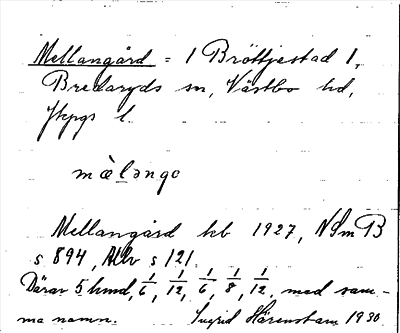 Mellangård = 1 Bröttjestad 1,
Bredaryds sn, Västbo hd,
Jkpgs l.
mὰləngo
Mellangård hb 1927, NSmB
s 894, Allv s 121.
Därav 5 hmd, 1/6, 1/12, 1/6, 1/8, 1/12, med sam-
ma namn. Ingrid Härenstam 1930